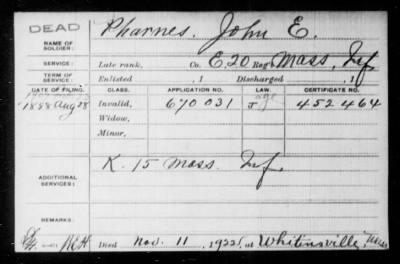 DEAD
NAME OF SOLDIER:
Pharnes, John E.
SERVICE:
Late rank, Co. E, 20 Reg't Mass. Inf.
TERM OF SERVICE:
Enlisted , 1 Discharged , 1
DATE OF FILING. CLASS. APPLICATION NO. LAW. CERTIFICATE NO.
1888 Aug 28 Invalid, 670 031 452 464
Widow,
Minor,
ADDITIONAL SERVICES:
K. 15 Mass. Inf.
REMARKS:
Died Nov. 11, 1922, at Whitinsville, Mass